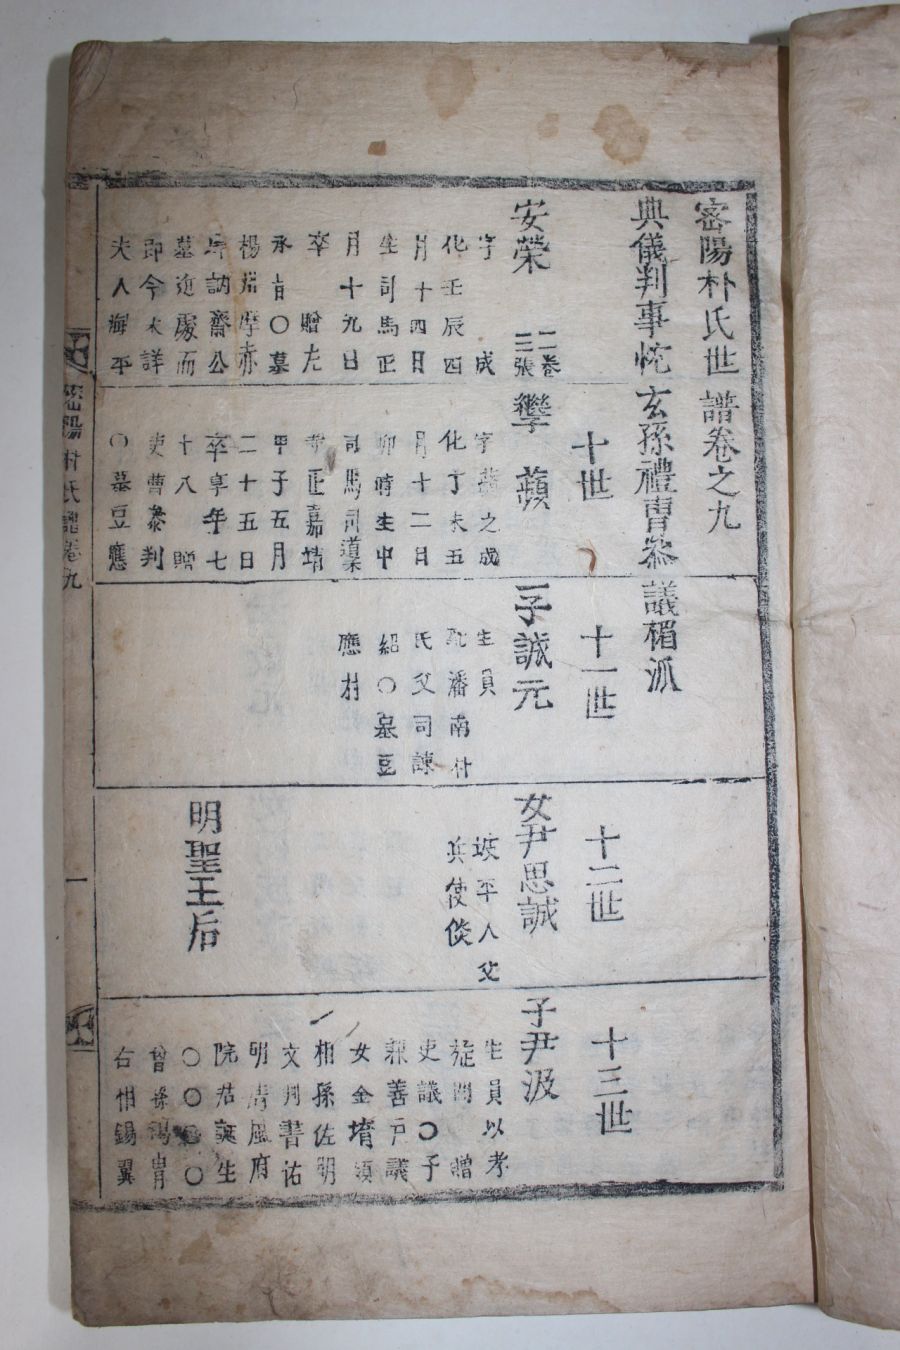 密陽朴氏世譜卷之九
典儀判事忱玄孫禮曹參議楣派
十世
十一世
十二世
十三世
安榮
二卷
三張
字成
化壬辰四
月十四日
生司馬正
月十九日
卒贈左
承旨〇墓
楊州摩赤
訥齋公
墓近處而
即今未詳
夫人海平
蘋
字之成
化丁未五
月十二日
卯時生中
司馬司導
寺正嘉靖
甲子五月
二十五日
卒享年七
十八贈
吏曹參判
〇墓豆應
子誠元
生員
配潘南朴
氏父司諫
紹〇墓豆
應村
女尹思誠
坡平人父
兵使倓
明聖王后
子尹汲
生員以孝
旌閭贈
吏議〇子
衡善戶議
女金堉領
相孫佐明
文判書祐
明淸風府
院君誕生
〇〇〇〇
曾孫錫胄
右相錫翼
密陽朴氏譜卷九
一